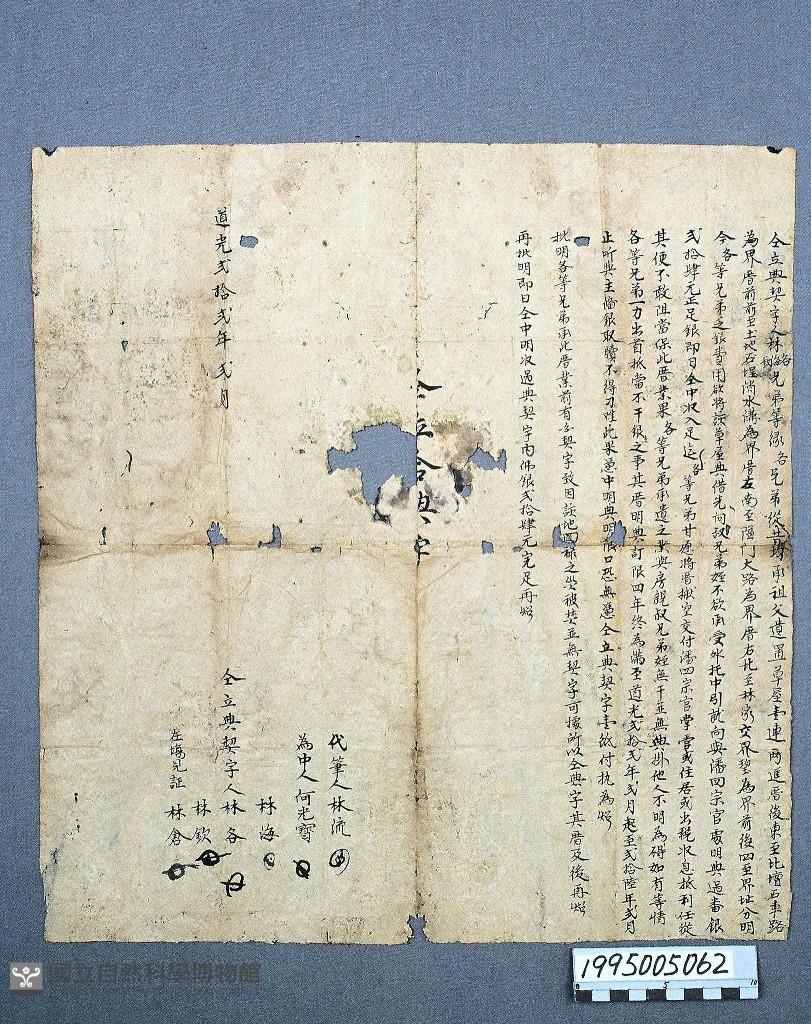 仝立典契字人林各海欽兄弟等緣各兄弟從共場承祖父遺置草厝壹連兩進厝後東至北壇石車路
為界厝前前至土地石埕消水溝為界厝左南至隘門大路為界厝右北至林家交界壁為界前後四至界址分明
今各等兄弟乏銀費用欲將該草屋典借先問叔兄弟姪不欲承受外托中引就向與潘四宗官處明典過番銀
弍拾肆元正足銀即日仝中收入足訖各等兄弟甘愿將厝搬空交付潘四宗官掌管或住居或出稅收息抵利任從
其便不敢阻當保此厝業果各等兄弟承遺之業與房親叔兄弟姪無干並無典掛他人不明為碍如有等情
各等兄弟一力出首抵當不干銀之事其厝明典訂限四年終為滿至道光弍拾弍年弍月起至弍拾陸年弍月
止听典主俻銀取贖不得刁难此果憑中明典明限口恐無憑仝立典契字壹紙付执為炤
批明各等兄弟承此厝業前有分契字致因該地四標之災被焚並無契字可據所以仝典字其厝及後再炤
再批明即日仝中明收過典契字內佛銀弍拾肆元完足再炤
仝立合典字
道光弍拾弍年弍月
代筆人林流
為中人何光寶
林海
仝立典契字人林各
林欽
在塲見証 林倉
國立自然科學博物館
1995005062